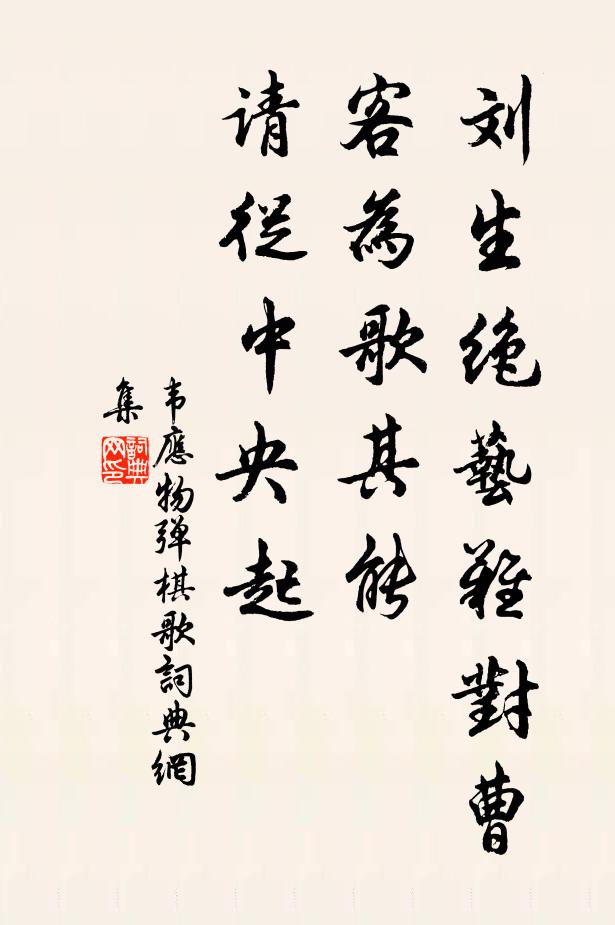 刘生绝藝難對曹
客為歌其能
请從中央起
韦應物弹棋歌詞典網
集
詞典網印